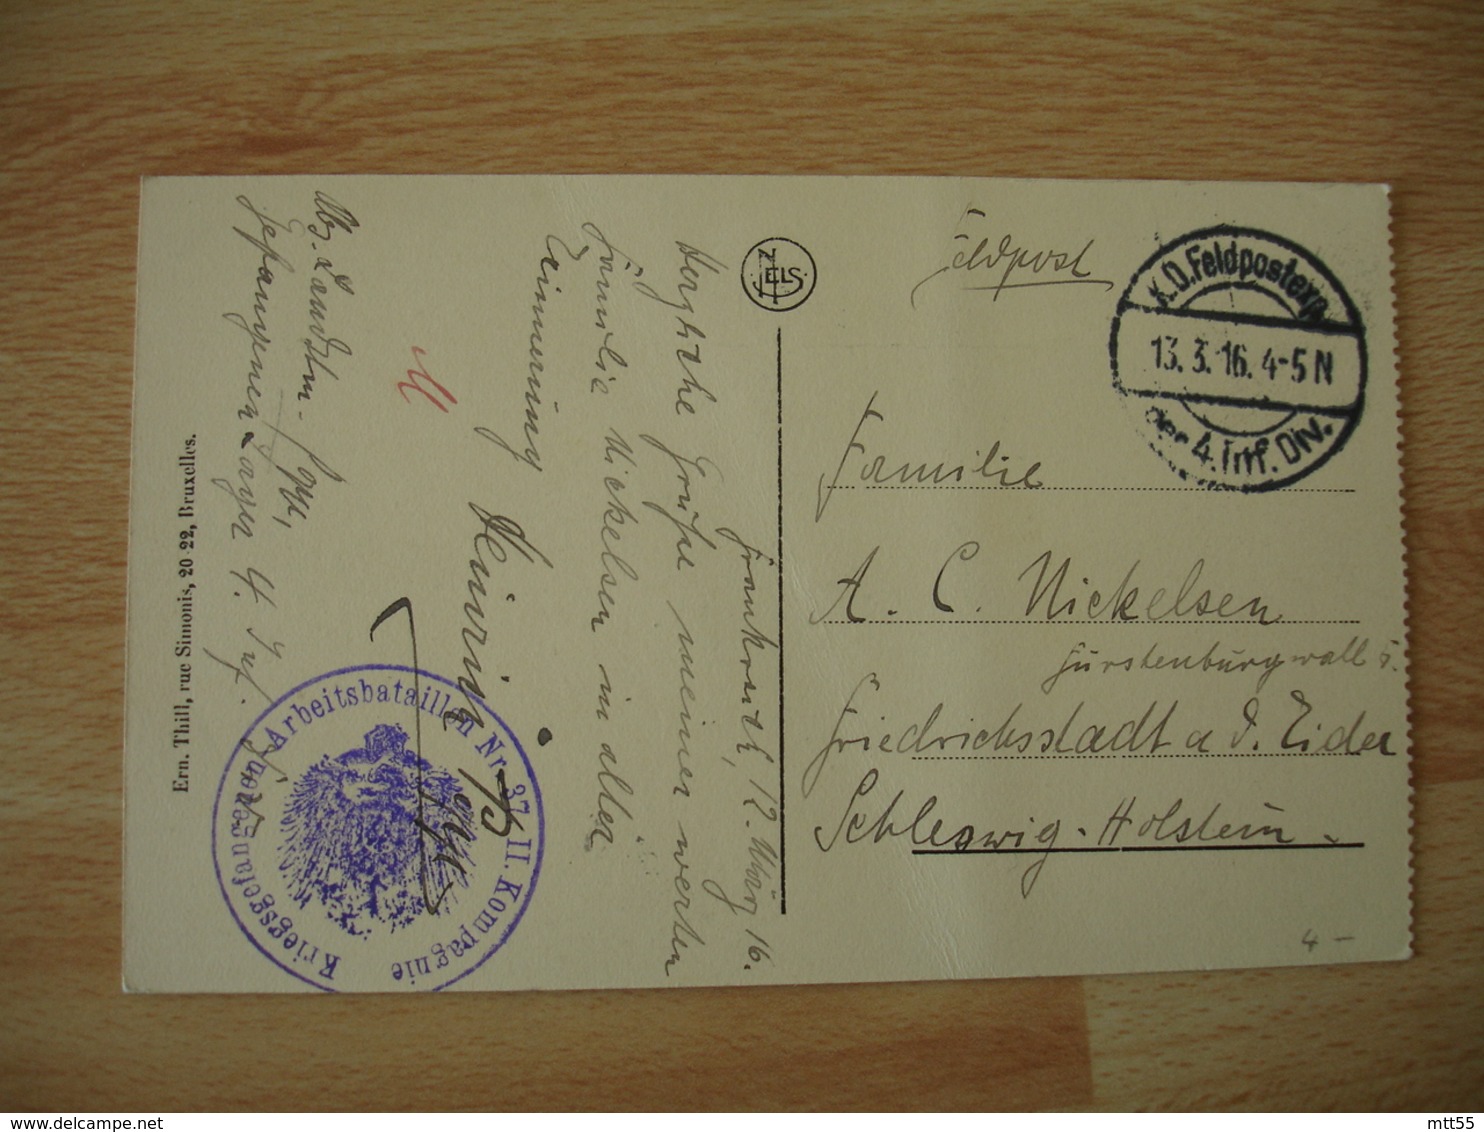 Feldpost
K.D.Feldpostexp.
13.3.16. 4-5 N
der 4. Inf. Div.
Familie
A. C. Nickelsen
Fürstenburgwall 5.
Friedrichsstadt a d. Eider
Schleswig-Holstein
4-
NELS
Frankreich, 12. März 16.
Herzliche Grüße meiner werten
Familie Nickelsen in alter
Erinnerung
Heinrich
Abs. Landstm.
Gefangenen Lager 4. Inf.
Kriegsgefangenen Arbeitsbataillon Nr. 37. II. Kompagnie
Ern. Thill, rue Simonis, 20-22, Bruxelles.
mtt55